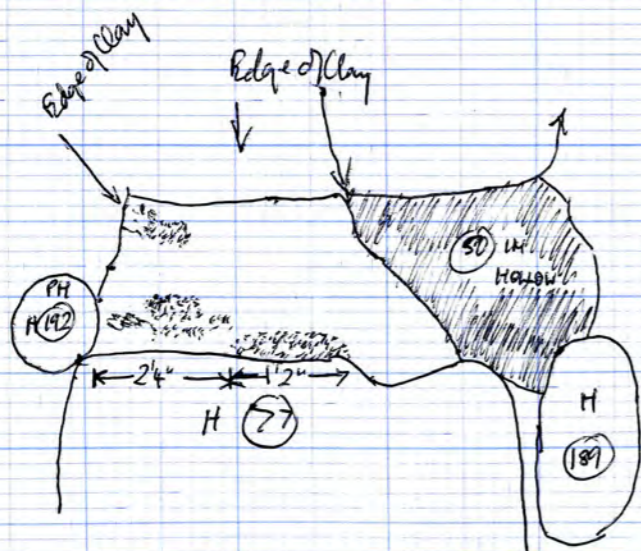 Edge of Clay
Edge of Clay
50 in
Hollow
PH
H 192
2'4" 1'2"
H 77
H
189